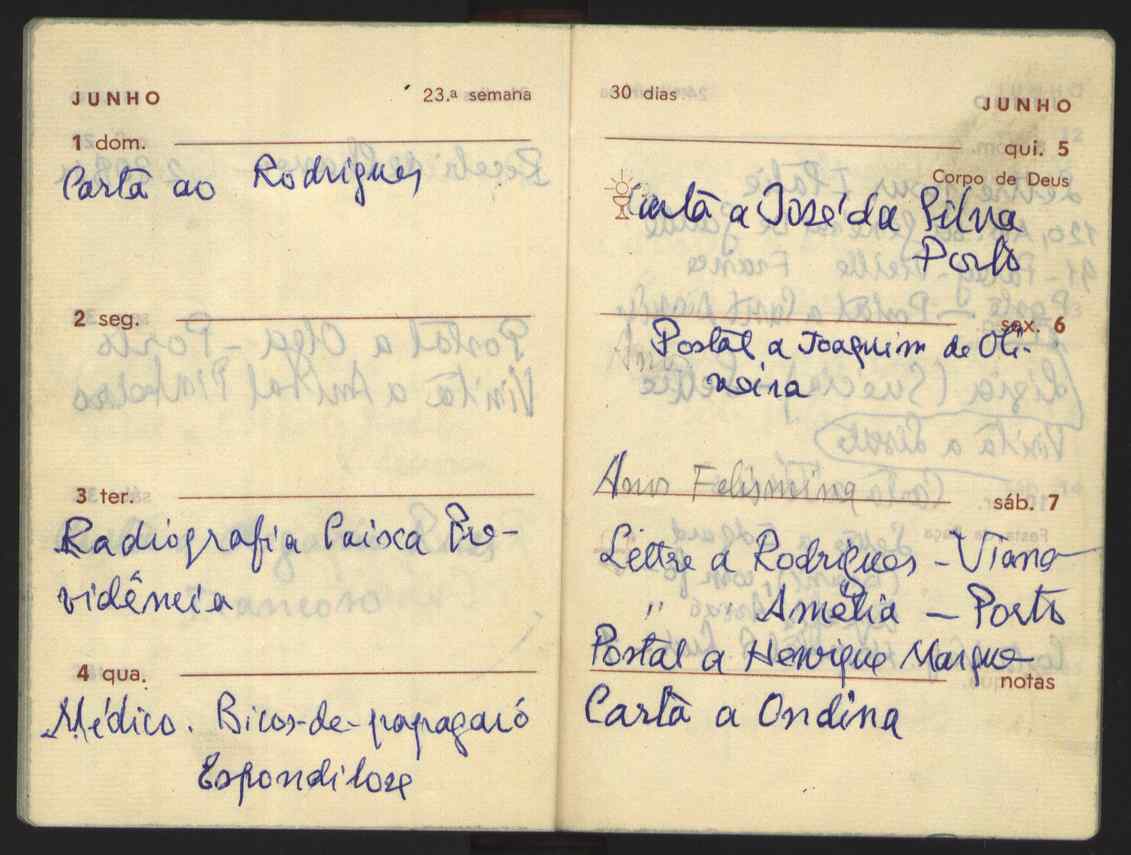 JUNHO 23.ª semana
1 dom.
Carta ao Rodrigues
2 seg.
3 ter.
Radiografia Caixa Pre-
vidência
4 qua.
Médico. Bicos-de-papagaio
Espondilose
30 dias JUNHO
qui. 5
Corpo de Deus
Carta a José da Silva
Porto
sex. 6
Postal a Joaquim de Oli-
veira
Felismina
sáb. 7
Lettre a Rodrigues - Viana
" Amélia - Porto
Postal a Henrique Marques
notas
Carta a Ondina